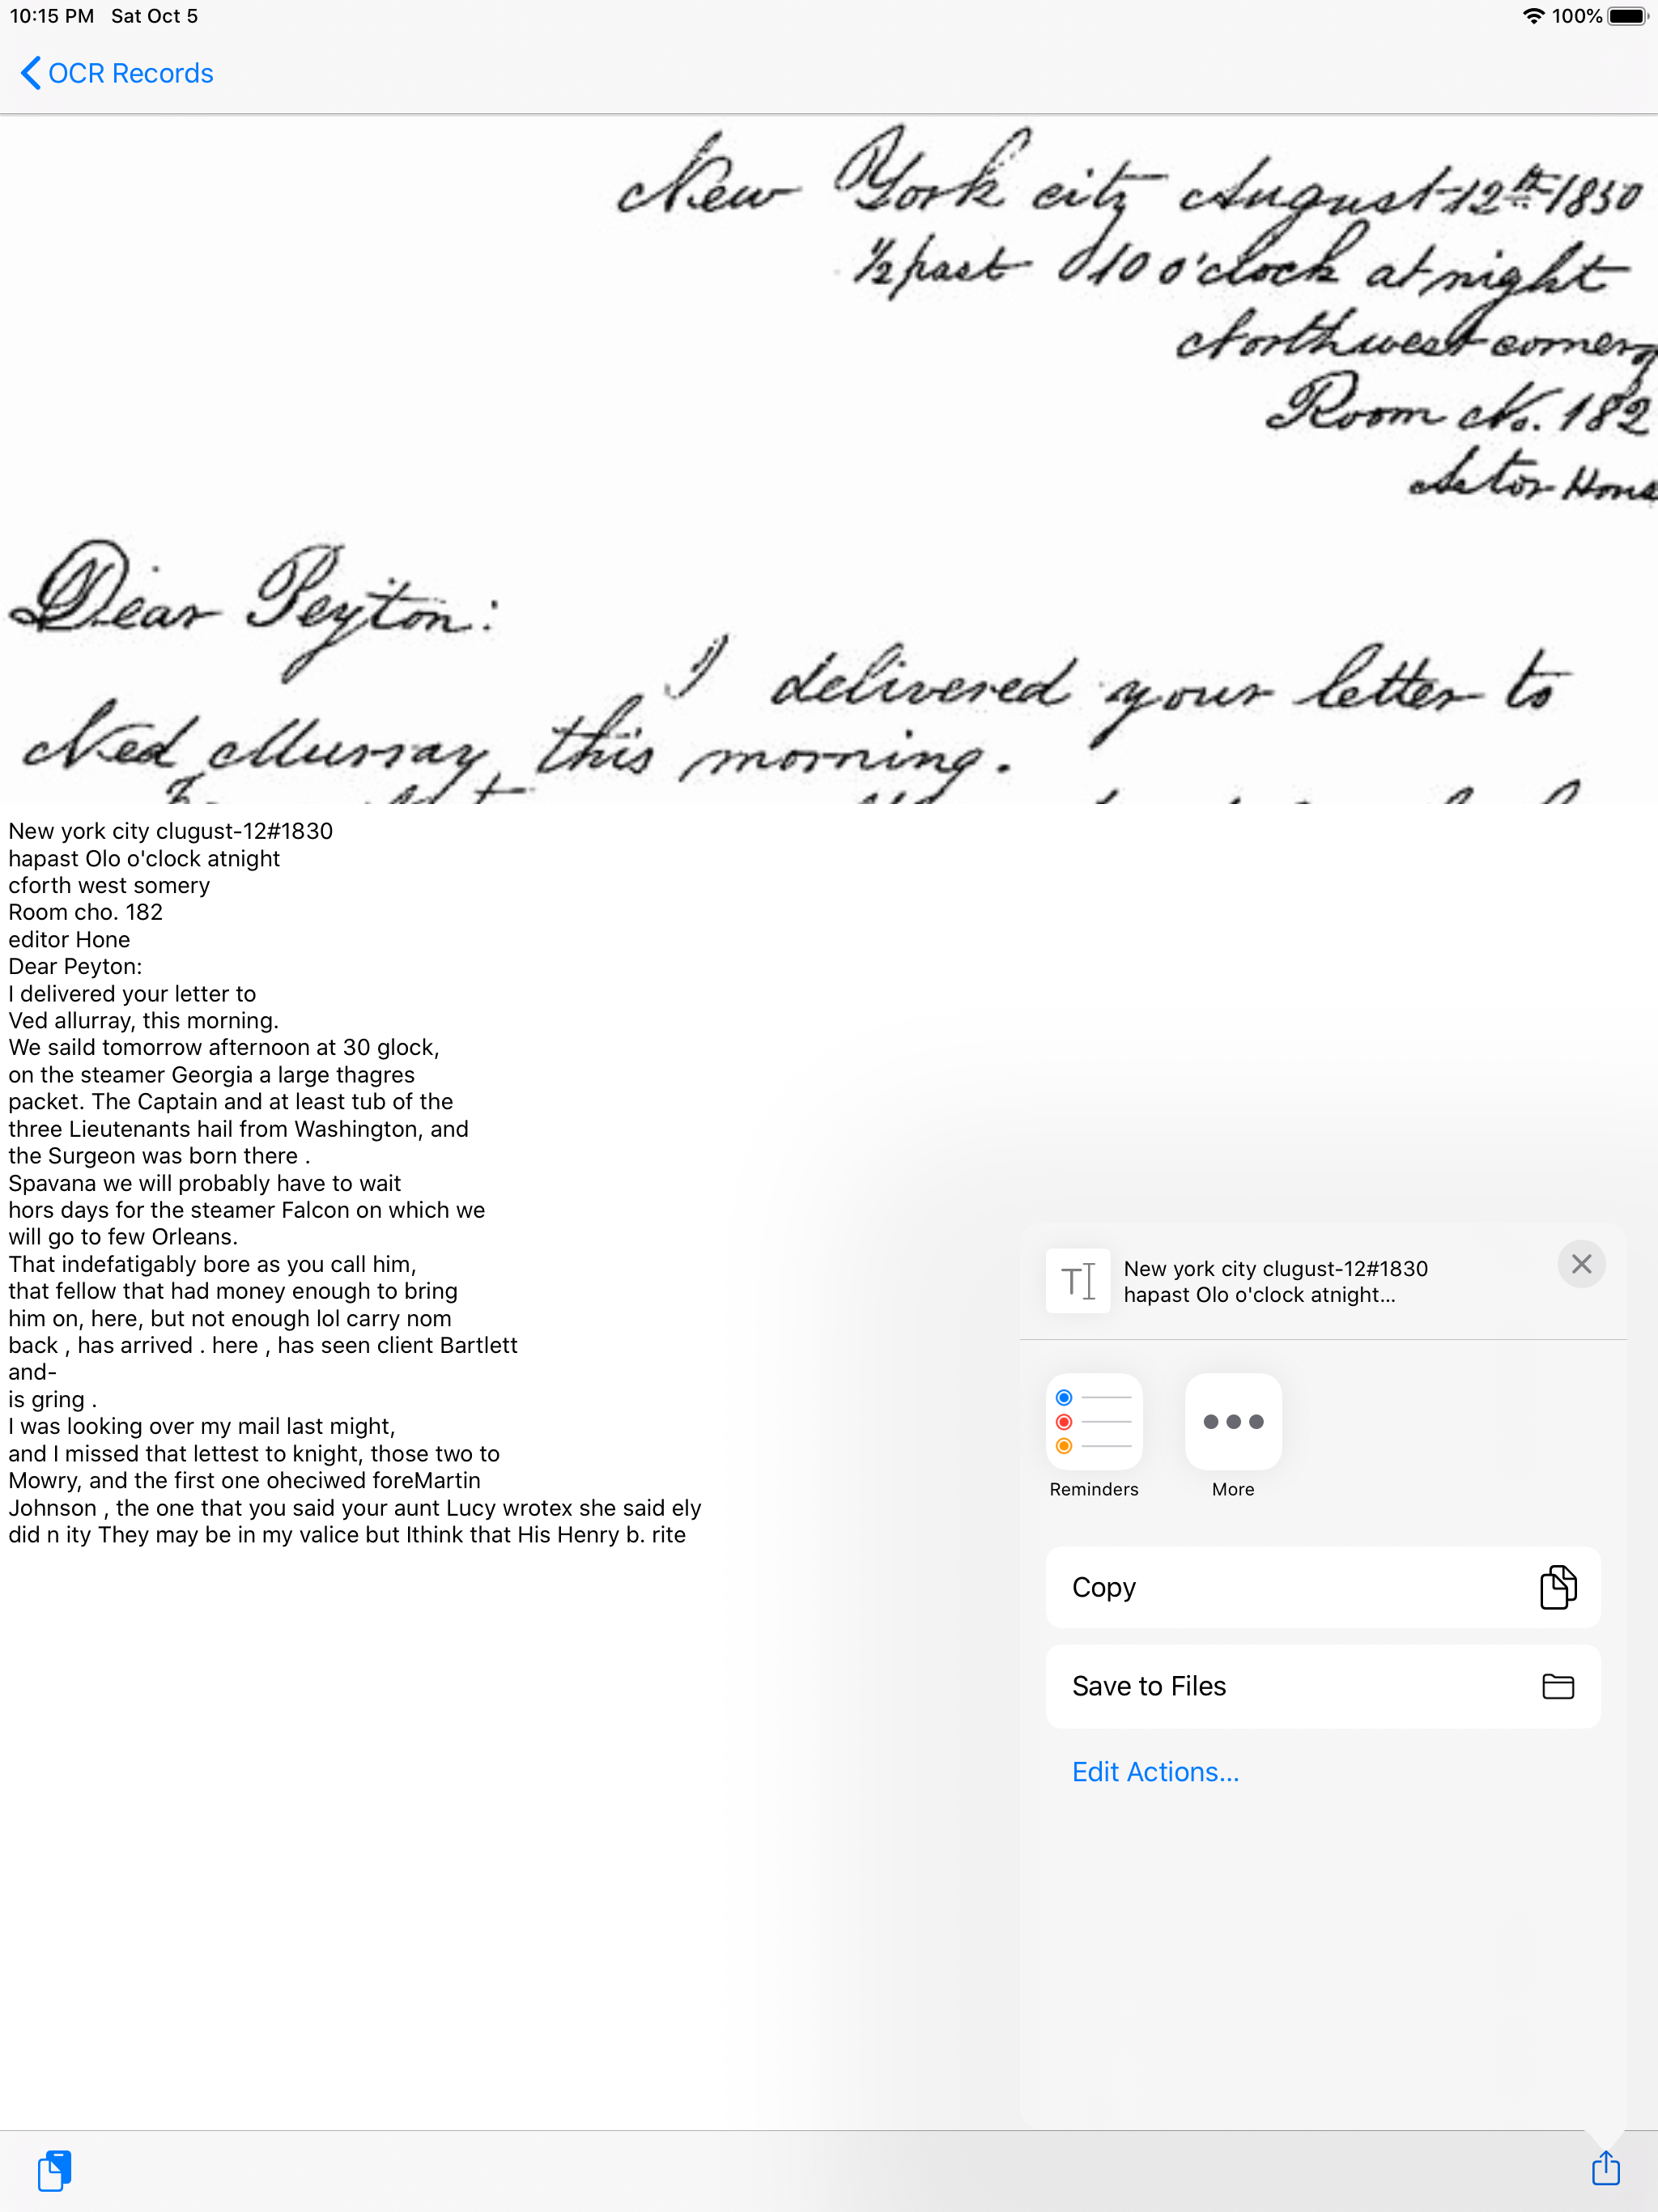 10:15 PM Sat Oct 5
100%
OCR Records
New York city August 12th 1850
½ past 10 o'clock at night
Northwest corner
Room No. 182
Astor Hous
Dear Peyton:
I delivered your letter to
Ned Murray, this morning.
New york city clugust-12#1830
hapast Olo o'clock atnight
cforth west somery
Room cho. 182
editor Hone
Dear Peyton:
I delivered your letter to
Ved allurray, this morning.
We saild tomorrow afternoon at 30 glock,
on the steamer Georgia a large thagres
packet. The Captain and at least tub of the
three Lieutenants hail from Washington, and
the Surgeon was born there .
Spavana we will probably have to wait
hors days for the steamer Falcon on which we
will go to few Orleans.
That indefatigably bore as you call him,
that fellow that had money enough to bring
him on, here, but not enough lol carry nom
back , has arrived . here , has seen client Bartlett
and-
is gring .
I was looking over my mail last might,
and I missed that lettest to knight, those two to
Mowry, and the first one oheciwed foreMartin
Johnson , the one that you said your aunt Lucy wrotex she said ely
did n ity They may be in my valice but Ithink that His Henry b. rite
New york city clugust-12#1830
hapast Olo o'clock atnight...
Reminders
More
Copy
Save to Files
Edit Actions...